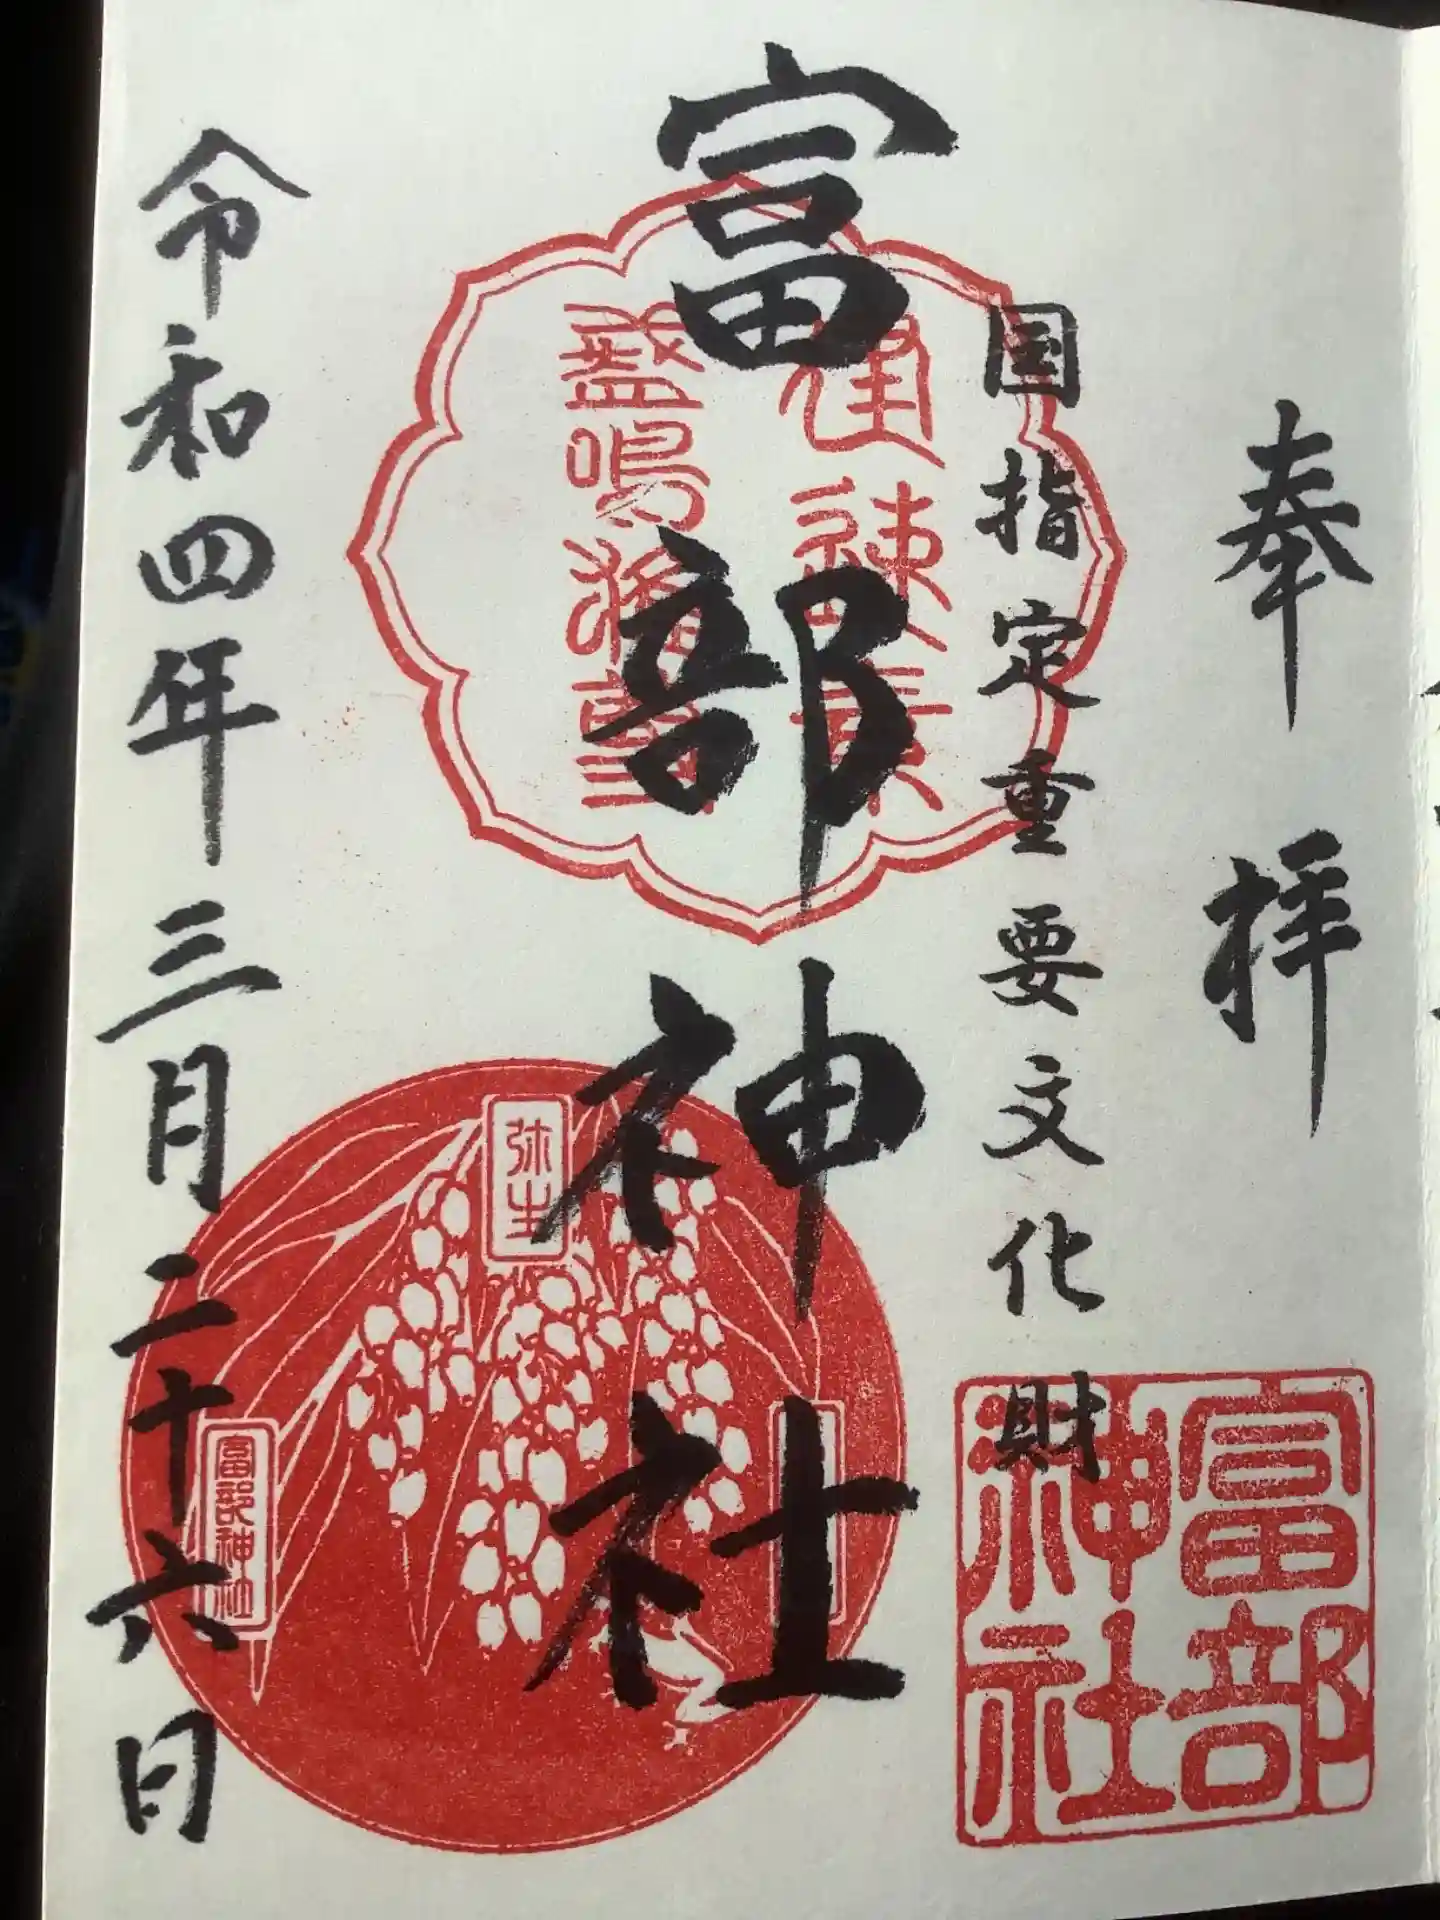 奉拝
国指定重要文化財
富部神社
令和四年三月二十六日
富部
神社
弥生
富部神社